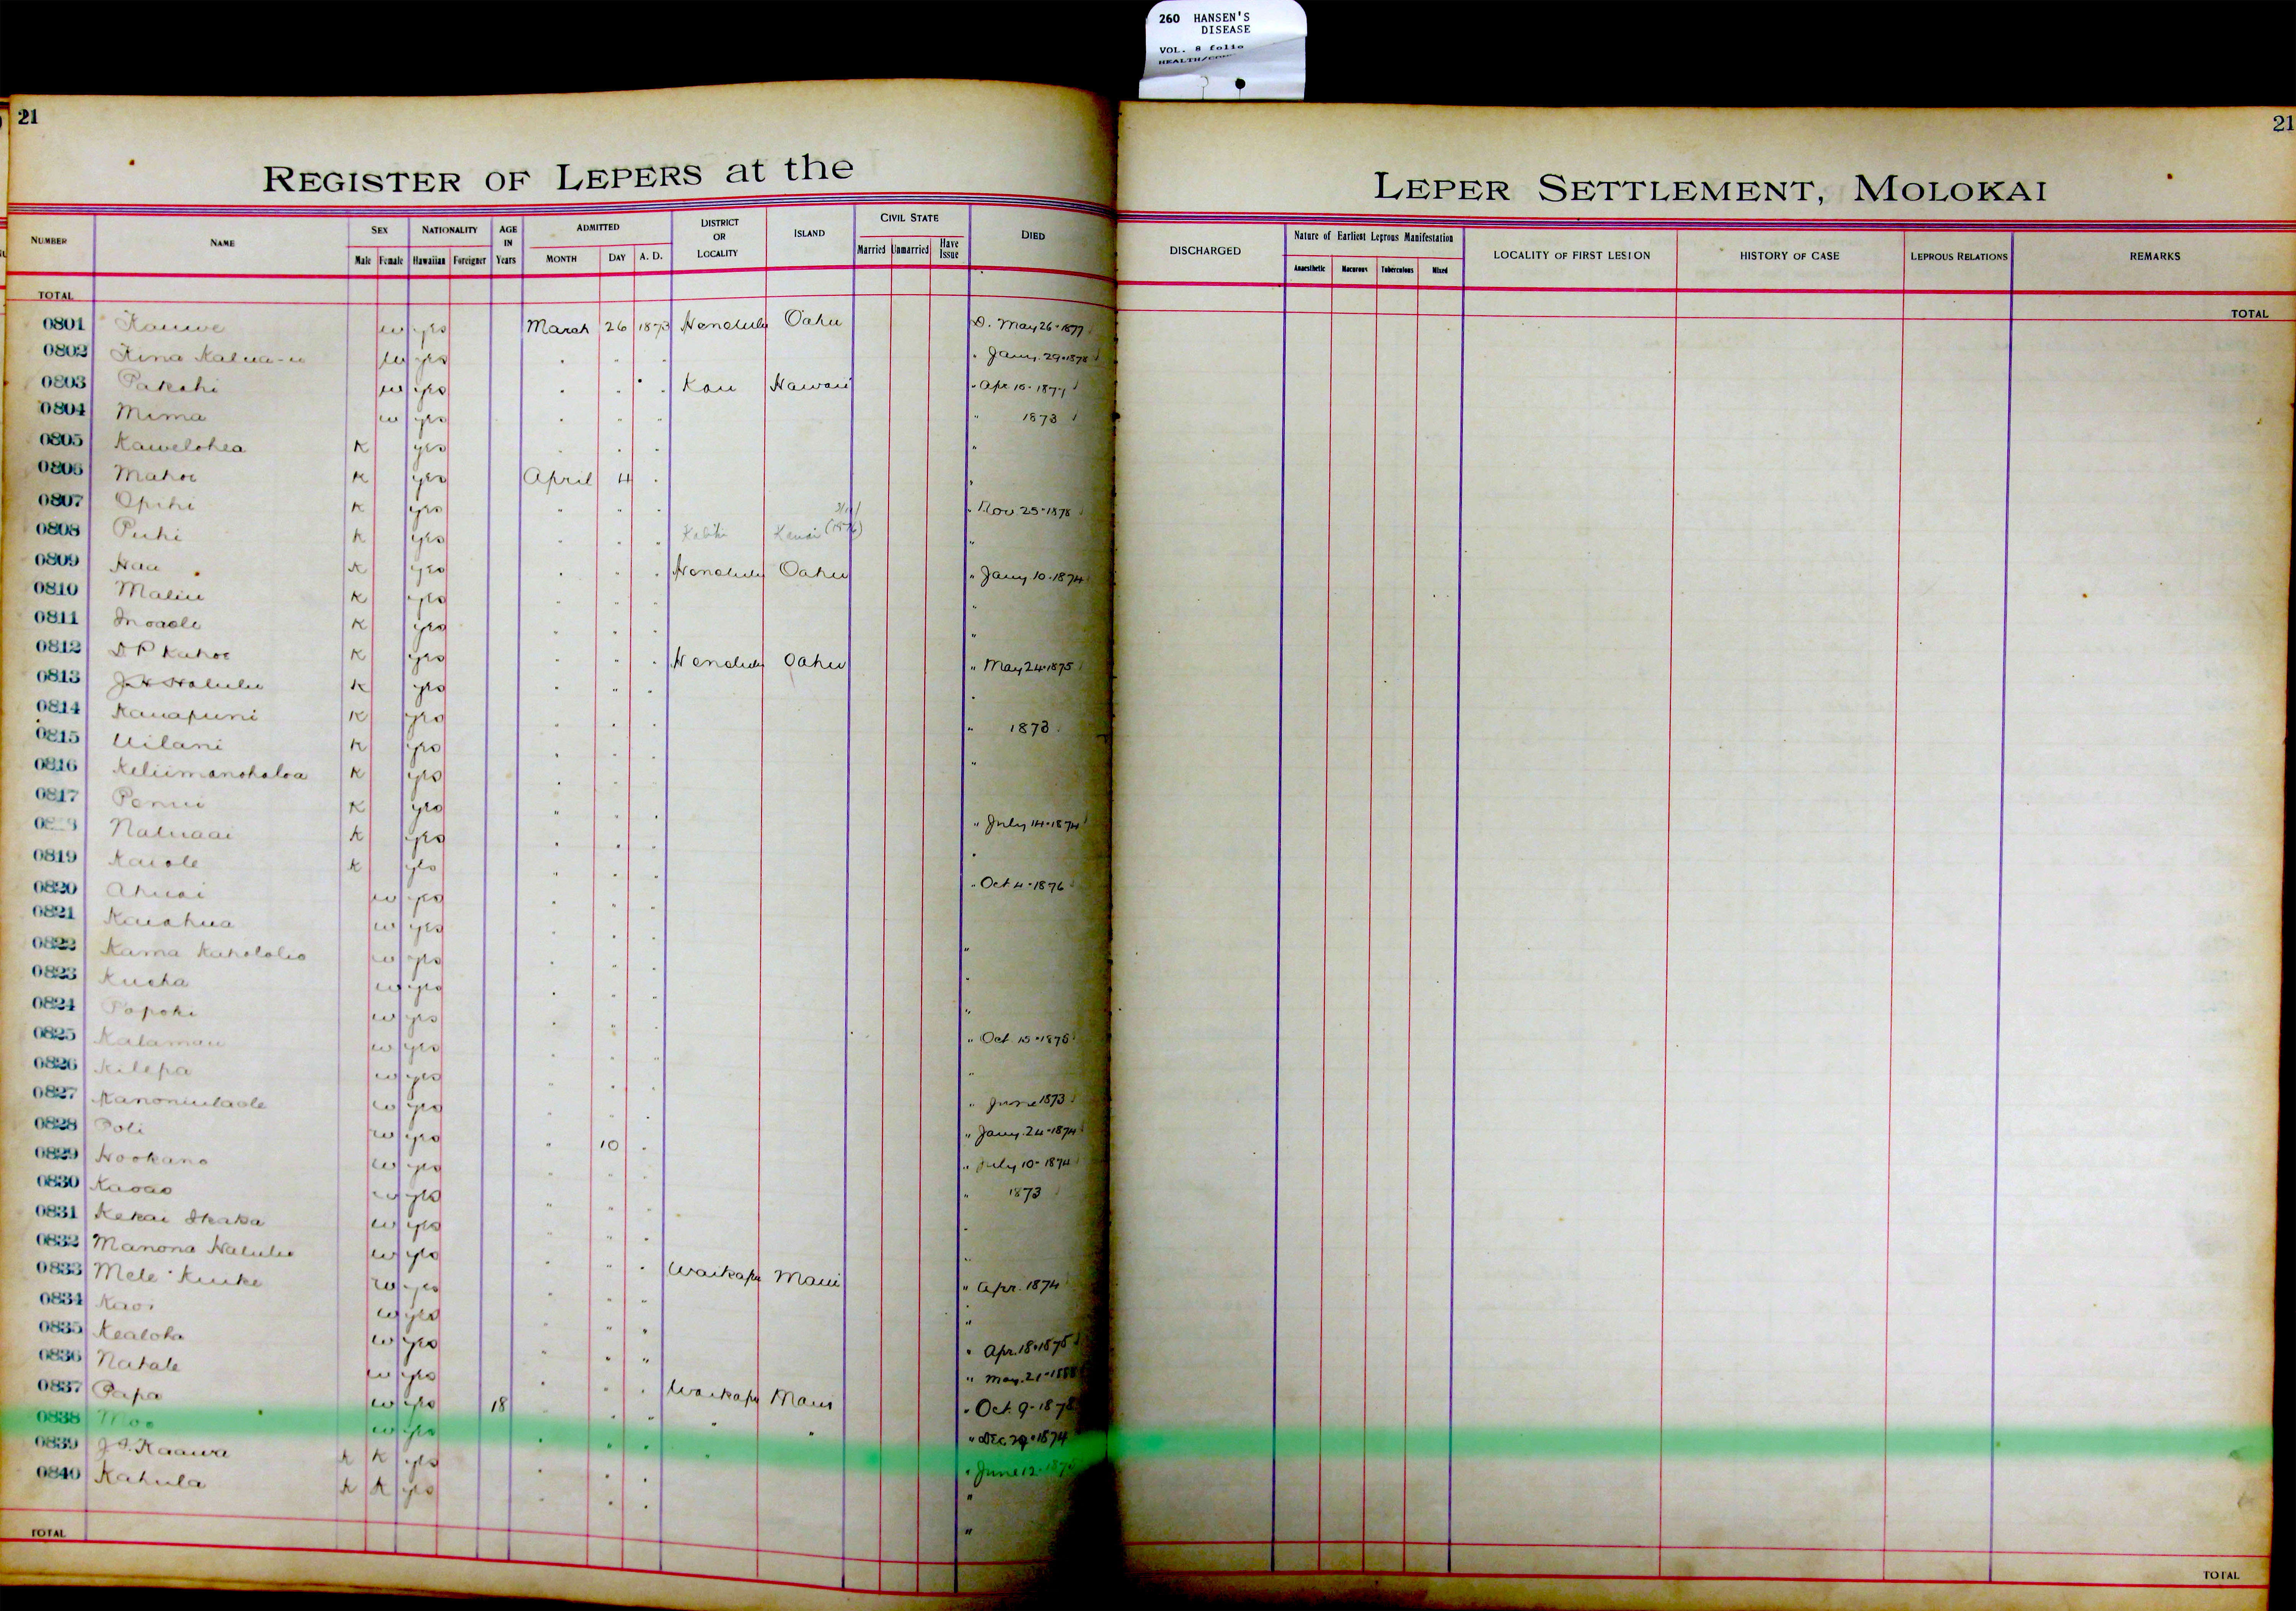 260 HANSEN'S
DISEASE
VOL. 8 folio
21
21
REGISTER OF LEPERS at the
LEPER SETTLEMENT, MOLOKAI
NUMBER NAME SEX NATIONALITY AGE IN Years ADMITTED DISTRICT OR LOCALITY ISLAND CIVIL STATE DIED
Male Female Hawaiian Foreigner MONTH DAY A. D. Married Unmarried Have Issue
DISCHARGED Nature of Earliest Leprous Manifestation LOCALITY OF FIRST LESION HISTORY OF CASE LEPROUS RELATIONS REMARKS
Anaesthetic Macurous Tuberculous Mixed
TOTAL
TOTAL
0801 Kauwe w yes March 26 1873 Honolulu Oahu D. May 26 - 1877
0802 w yes " " " " Jany. 29 - 1878
0803 Pakahi w yes " " " Kau Hawaii " Apr 16 - 1877
0804 Mima w yes " " " " 1873
0805 Kawelohea K yes " " " "
0806 Mahoe K yes April 4 " "
0807 Opihi K yes " " " " Nov 25 - 1878
0808 Puhi K yes " " " Kauai "
0809 Hau K yes " " " Honolulu Oahu " Jany 10 - 1874
0810 Maliu K yes " " " "
0811 K yes " " " "
0812 Kahoe K yes " " " Honolulu Oahu " May 24 - 1875
0813 K yes " " " "
0814 Kauapuni K yes " " " " 1873
0815 Uilani K yes " " " "
0816 Keliimanohaloa K yes " " "
0817 Penui K yes " " " " July 14 - 1874
Naluaai K yes " " " "
0819 Kaiole K yes " " " " Oct 4 - 1876
0820 Ahuai w yes " " "
0821 Kaiahua w yes " " " "
0822 Kama w yes " " " "
0823 Kueha w yes " " " "
0824 Popoki w yes " " " " Oct 15 -
0825 Kalamau w yes " " " "
0826 Kilepa w yes " " " " June 1873
0827 w yes " " " " Jany. 24 - 1874
0828 Poli w yes " 10 " " July 10 - 1874
0829 Hookano w yes " " " " 1873
0830 Kaoao w yes " " " "
0831 Kekai w yes " " " "
0832 Manona Halulu w yes " " " Waikapu Maui " Apr. 1874
0833 Mele Kuike w yes " " " "
0834 w yes " " " " Apr. 18 -
0835 Kealoha w yes " " " " May. 21 -
0836 w yes " " " Waikapu Maui " Oct. 9 - 1878
0837 Papa w yes 18 " " " " " " Dec 29 - 1874
0838 Moo w yes " " " " " June 12 -
0839 Kaawa K K yes " " " "
0840 Kahula K K yes " " " "
TOTAL
TOTAL